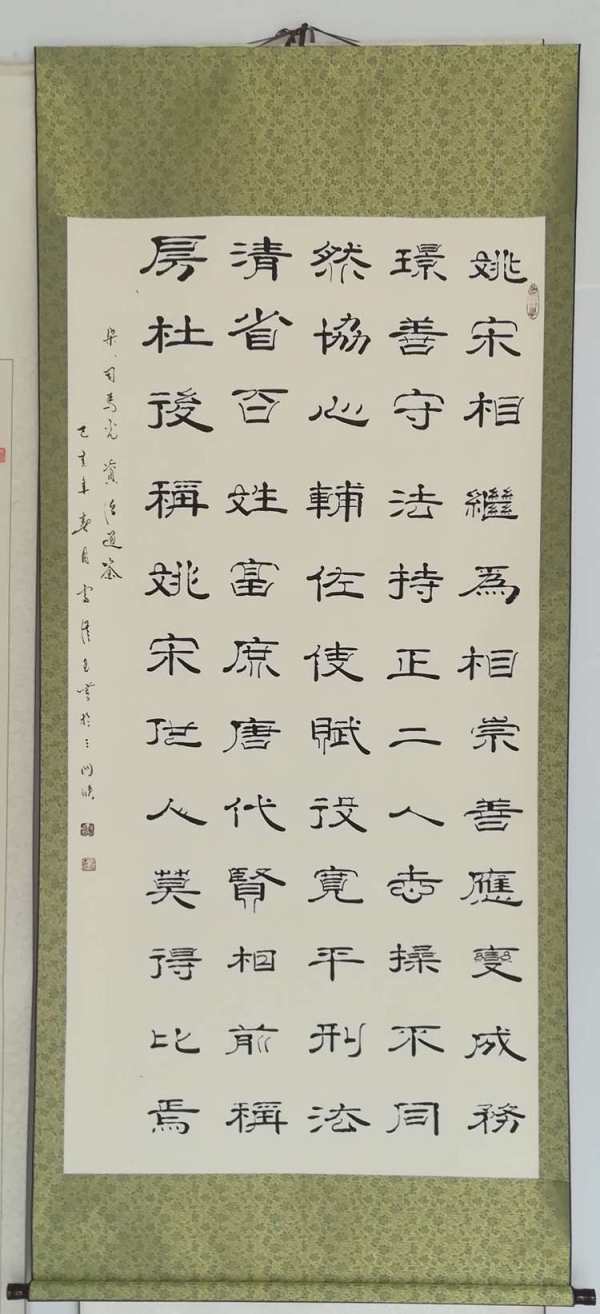 姚宋相繼為相崇善應變成務
璟善守法持正二人志操不同
然協心輔佐使賦役寬平刑法
清省百姓富庶唐代賢相前稱
房杜後稱姚宋他人莫得比焉
司馬光資治通鑒
己亥年春月於三門峽